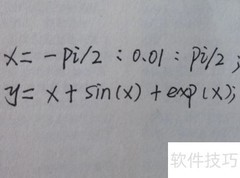 x = -pi/2 : 0.01 : pi/2 ;
y = x + sin(x) + exp(x);
软件技巧